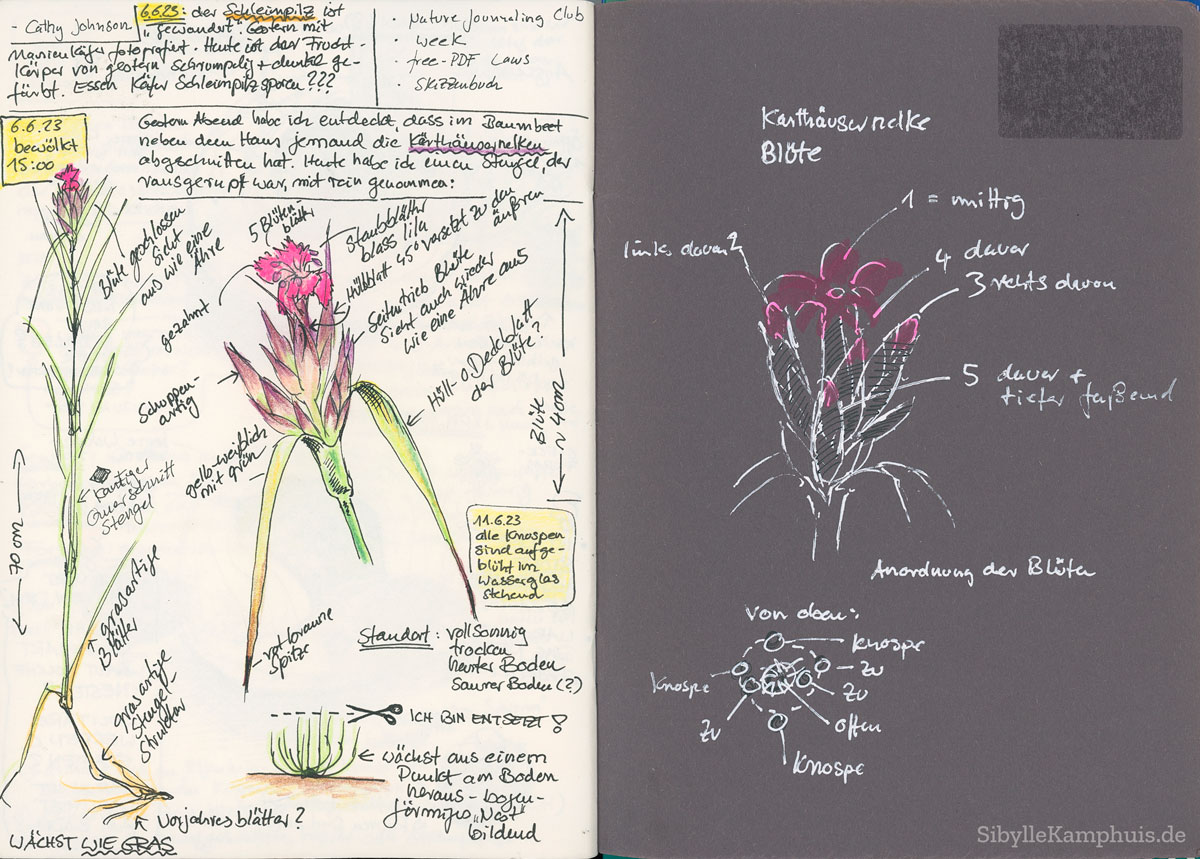 - Cathy Johnson
6.6.23: der Schleimpilz ist
"gewandert". Gestern mit
Marienkäfer fotografiert. Heute ist der Frucht-
körper von gestern schrumpelig + dunkel ge-
färbt. Essen Käfer Schleimpilzsporen???
· Nature Journaling Club
· Week
· free-PDF Laws
· Skizzenbuch
6.6.23
bewölkt
15:00
Gestern Abend habe ich entdeckt, dass im Baumbeet
neben dem Haus jemand die Karthäusernelken
abgeschnitten hat. Heute habe ich einen Stengel, der
rausgerupft war, mit rein genommen:
Blüte geschlossen
sieht
aus wie eine
Ähre
5 Blüten-
blätter
Staubblätter
blass lila
Hüllblatt 45° versetzt zu den
äußeren
gezahnt
Seitentrieb Blüte
sieht auch wieder
wie eine Ähre aus
Schuppen-
artig
Hüll- o. Deckblatt
der Blüte?
Blüte
~ 4 cm
gelb-weißlich
mit grün
kantiger
Querschnitt
Stengel
70 cm
grasartige
Blätter
grasartige
Stengel-
struktur
rotbraune
Spitze
11.6.23
alle Knospen
sind aufge-
blüht im
Wasserglas
stehend
Standort: vollsonnig
trocken
harter Boden
saurer Boden (?)
ICH BIN ENTSETZT!
wächst aus einem
Punkt am Boden
heraus - bogen-
förmiges "Nest"
bildend
Vorjahresblätter?
WÄCHST WIE GRAS
Karthäusernelke
Blüte
1 = mittig
links davon 2
4 davor
3 rechts davon
5 davor +
tiefer
Anordnung der Blüten
von oben:
Knospe
Knospe
zu
zu
zu
offen
Knospe
SibylleKamphuis.de